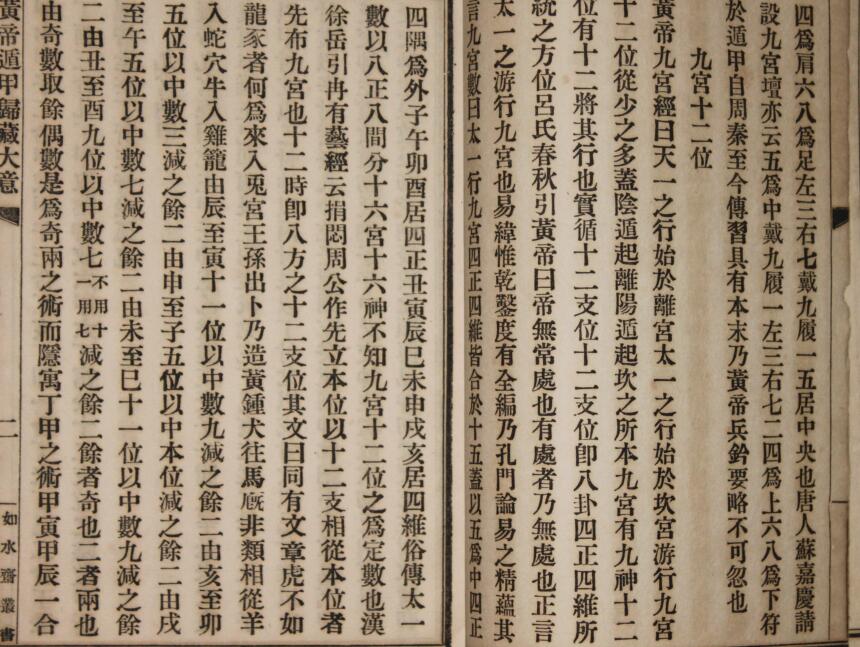 四爲肩六八爲足左三右七戴九履一五居中央也唐人蘇嘉慶請
設九宮壇亦云五爲中戴九履一左三右七二四爲上六八爲下符
於遁甲自周秦至今傳習具有本末乃黃帝兵鈐要略不可忽也
九宮十二位
黃帝九宮經曰天一之行始於離宮太一之行始於坎宮游行九宮
十二位從少之多蓋陰遁起離陽遁起坎之所本九宮有九神十二
位有十二將其行也實循十二支位十二支位卽八卦四正四維所
統之方位呂氏春秋引黃帝曰帝無常處也有處者乃無處也正言
太一之游行九宮也易緯惟乾鑿度有全編乃孔門論易之精蘊其
言九宮數曰太一行九宮四正四維皆合於十五蓋以五爲中四正
四隅爲外子午卯酉居四正丑寅辰巳未申戌亥居四維俗傳太一
數以八正八間分十六宮十六神不知九宮十二位之爲定數也漢
徐岳引冉有藝經云捐悶周公作先立本位以十二支相從本位者
先布九宮也十二時卽八方之十二支位其文曰同有文章虎不如
龍豕者何爲來入兎宮王孫出卜乃造黃鍾犬往馬廐非類相從羊
入蛇穴牛入雞籠由辰至寅十一位以中數九減之餘二由亥至卯
五位以中數三減之餘二由申至子五位以中本位減之餘二由戌
至午五位以中數七減之餘二由未至巳十一位以中數九減之餘
二由丑至酉九位以中數七不用十一用七減之餘二餘者奇也二者兩也
由奇數取餘偶數是爲奇兩之術而隱寓丁甲之術甲寅甲辰一合
黃帝遁甲歸藏大意
二
如水齋叢書